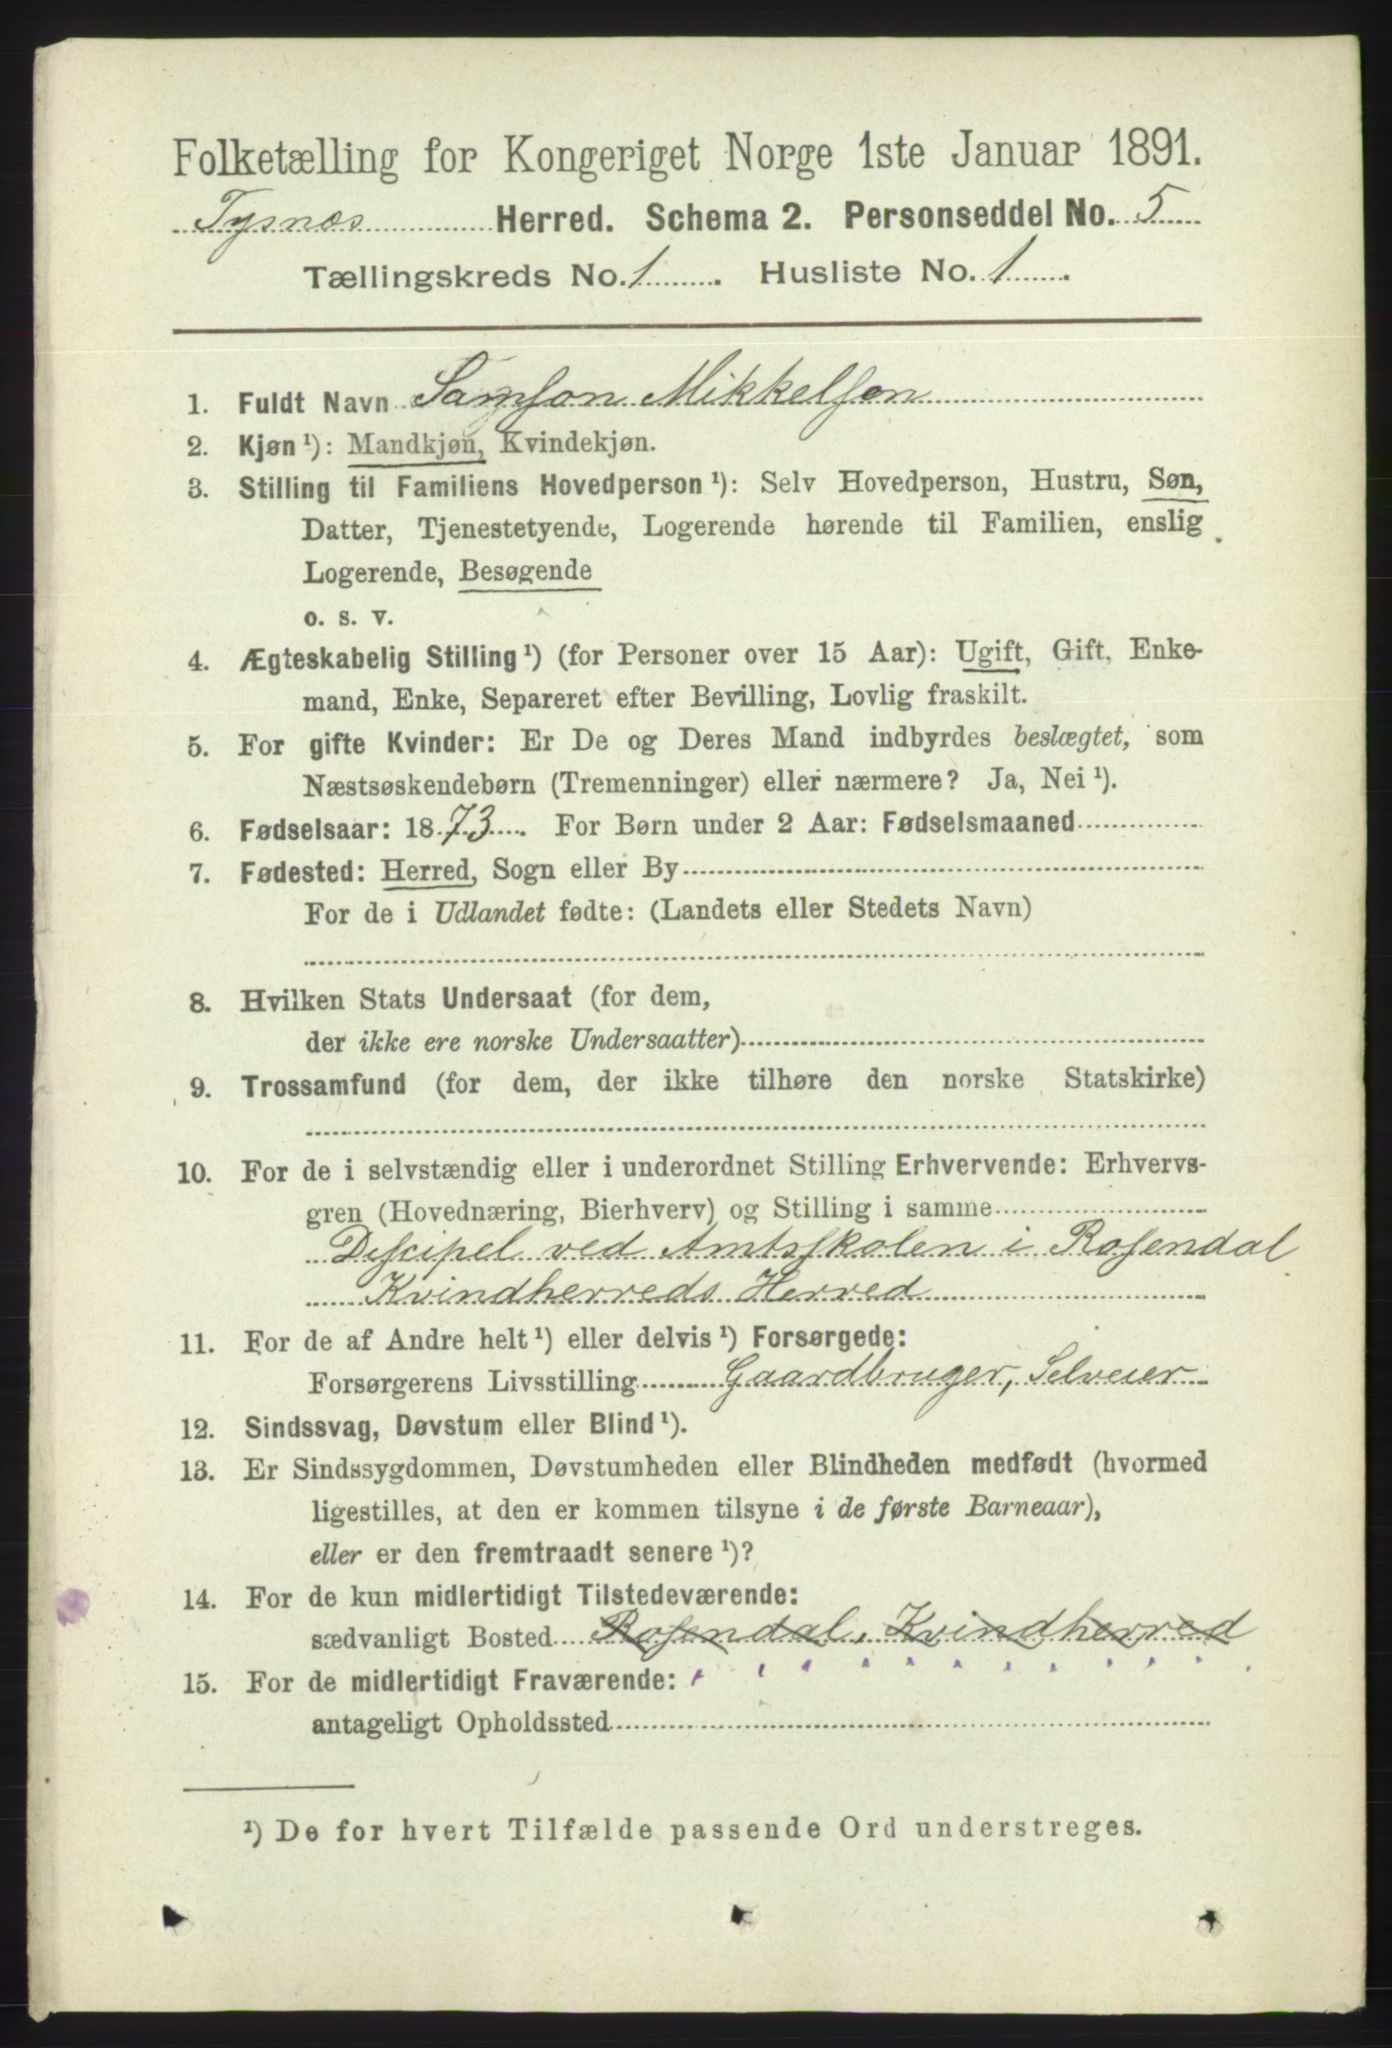 Folketælling for Kongeriget Norge 1ste Januar 1891.
Tysnæs Herred. Schema 2. Personseddel No. 5
Tællingskreds No. 1. Husliste No. 1.
1. Fuldt Navn Samson Mikkelson
2. Kjøn ¹): Mandkjøn, Kvindekjøn.
3. Stilling til Familiens Hovedperson ¹): Selv Hovedperson, Hustru, Søn,
Datter, Tjenestetyende, Logerende hørende til Familien, enslig
Logerende, Besøgende
o. s. v.
4. Ægteskabelig Stilling ¹) (for Personer over 15 Aar): Ugift, Gift, Enke-
mand, Enke, Separeret efter Bevilling, Lovlig fraskilt.
5. For gifte Kvinder: Er De og Deres Mand indbyrdes beslægtet, som
Næstsøskendebørn (Tremenninger) eller nærmere? Ja, Nei ¹).
6. Fødselsaar: 1873. For Børn under 2 Aar: Fødselsmaaned
7. Fødested: Herred, Sogn eller By
For de i Udlandet fødte: (Landets eller Stedets Navn)
8. Hvilken Stats Undersaat (for dem,
der ikke ere norske Undersaatter)
9. Trossamfund (for dem, der ikke tilhøre den norske Statskirke)
10. For de i selvstændig eller i underordnet Stilling Erhvervende: Erhvervs-
gren (Hovednæring, Bierhverv) og Stilling i samme
Discipel ved Amtsskolen i Rosendal
Kvindherreds Herred
11. For de af Andre helt ¹) eller delvis ¹) Forsørgede:
Forsørgerens Livsstilling Gaardbruger, Selveier
12. Sindssvag, Døvstum eller Blind ¹).
13. Er Sindssygdommen, Døvstumheden eller Blindheden medfødt (hvormed
ligestilles, at den er kommen tilsyne i de første Barneaar),
eller er den fremtraadt senere ¹)?
14. For de kun midlertidigt Tilstedeværende:
sædvanligt Bosted Rosendal, Kvindherred
15. For de midlertidigt Fraværende:
antageligt Opholdssted
¹) De for hvert Tilfælde passende Ord understreges.